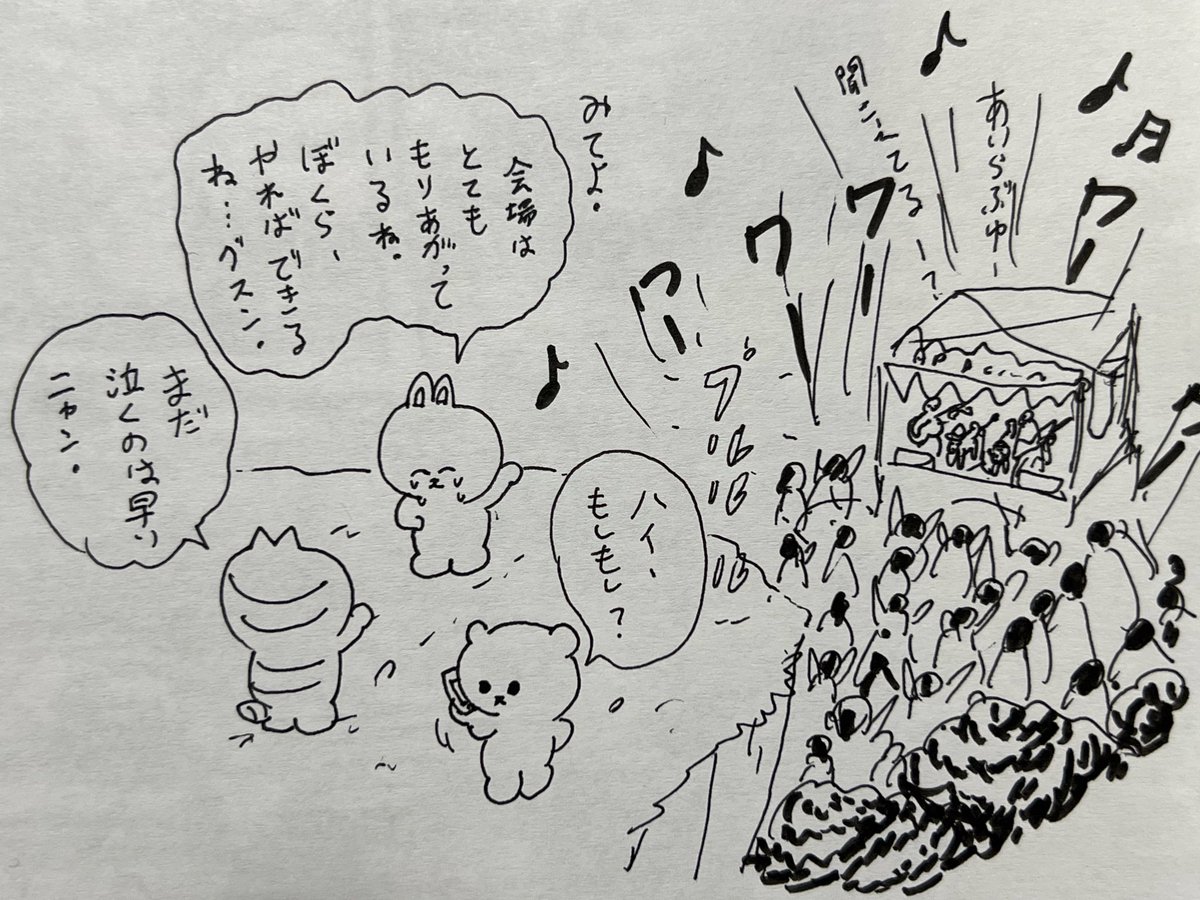 あいらぶゆー
聞こえてるー?
ワー
ワー
ワー
ワー
みてよ。
会場は
とても
もりあがって
いるね。
ぼくら、
やればできる
ね…グスン。
プルルル
ハイ、
もしもし?
まだ
泣くのは早い
ニャン。